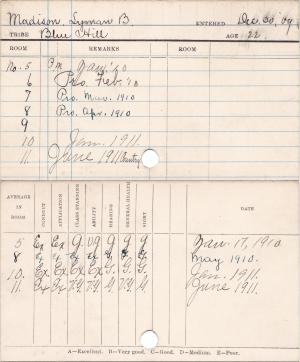 Madison, Lyman B. ENTERED Dec. 30, 09
TRIBE Blue Hill AGE 22
ROOM REMARKS ROOM
No. 5 Jan. '10
6 Pro. Feb. '10
7 Pro. Mar. 1910
8 Pro. Apr. 1910
9
10 Jan. 1911.
11. June 1911. Country
AVERAGE IN ROOM CONDUCT APPLICATION CLASS STANDING ABILITY HEARING GENERAL HEALTH SIGHT DATE
5 Ex Ex G VG G G G Jan. 17, 1910
8 Ex Ex G G G G May 1910.
10. Ex. Ex. Ex. Ex. G. G. G. Jan. 1911.
11. Ex. Ex. V.G. V.G. G. G. G. June 1911.
A—Excellent. B—Very good. C—Good. D—Medium. E—Poor.